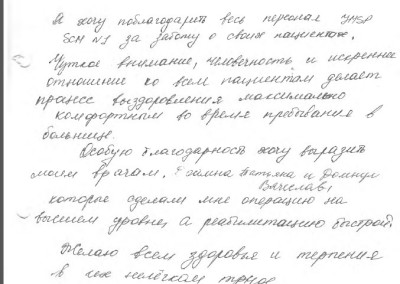 Я хочу поблагодарить весь персонал IMSP
SCM №1 за заботу о своих пациентах.
Чуткое внимание, человечность и искреннее
отношение ко всем пациентам делает
процесс выздоровления максимально
комфортным во время пребывания в
больнице.
Особую благодарность хочу выразить
моим врачам.
Вячеслав,
которые сделали мне операцию на
высшем уровне, а реабилитацию быстрой.
Желаю всем здоровья и терпения
в их нелёгком труде